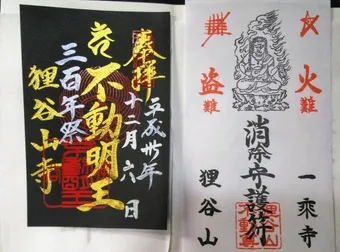 奉拝
平成卅年
十二月六日
不動明王
三百年祭
狸谷山寺
火難
盗難
消除守護符
一乗寺
狸谷山